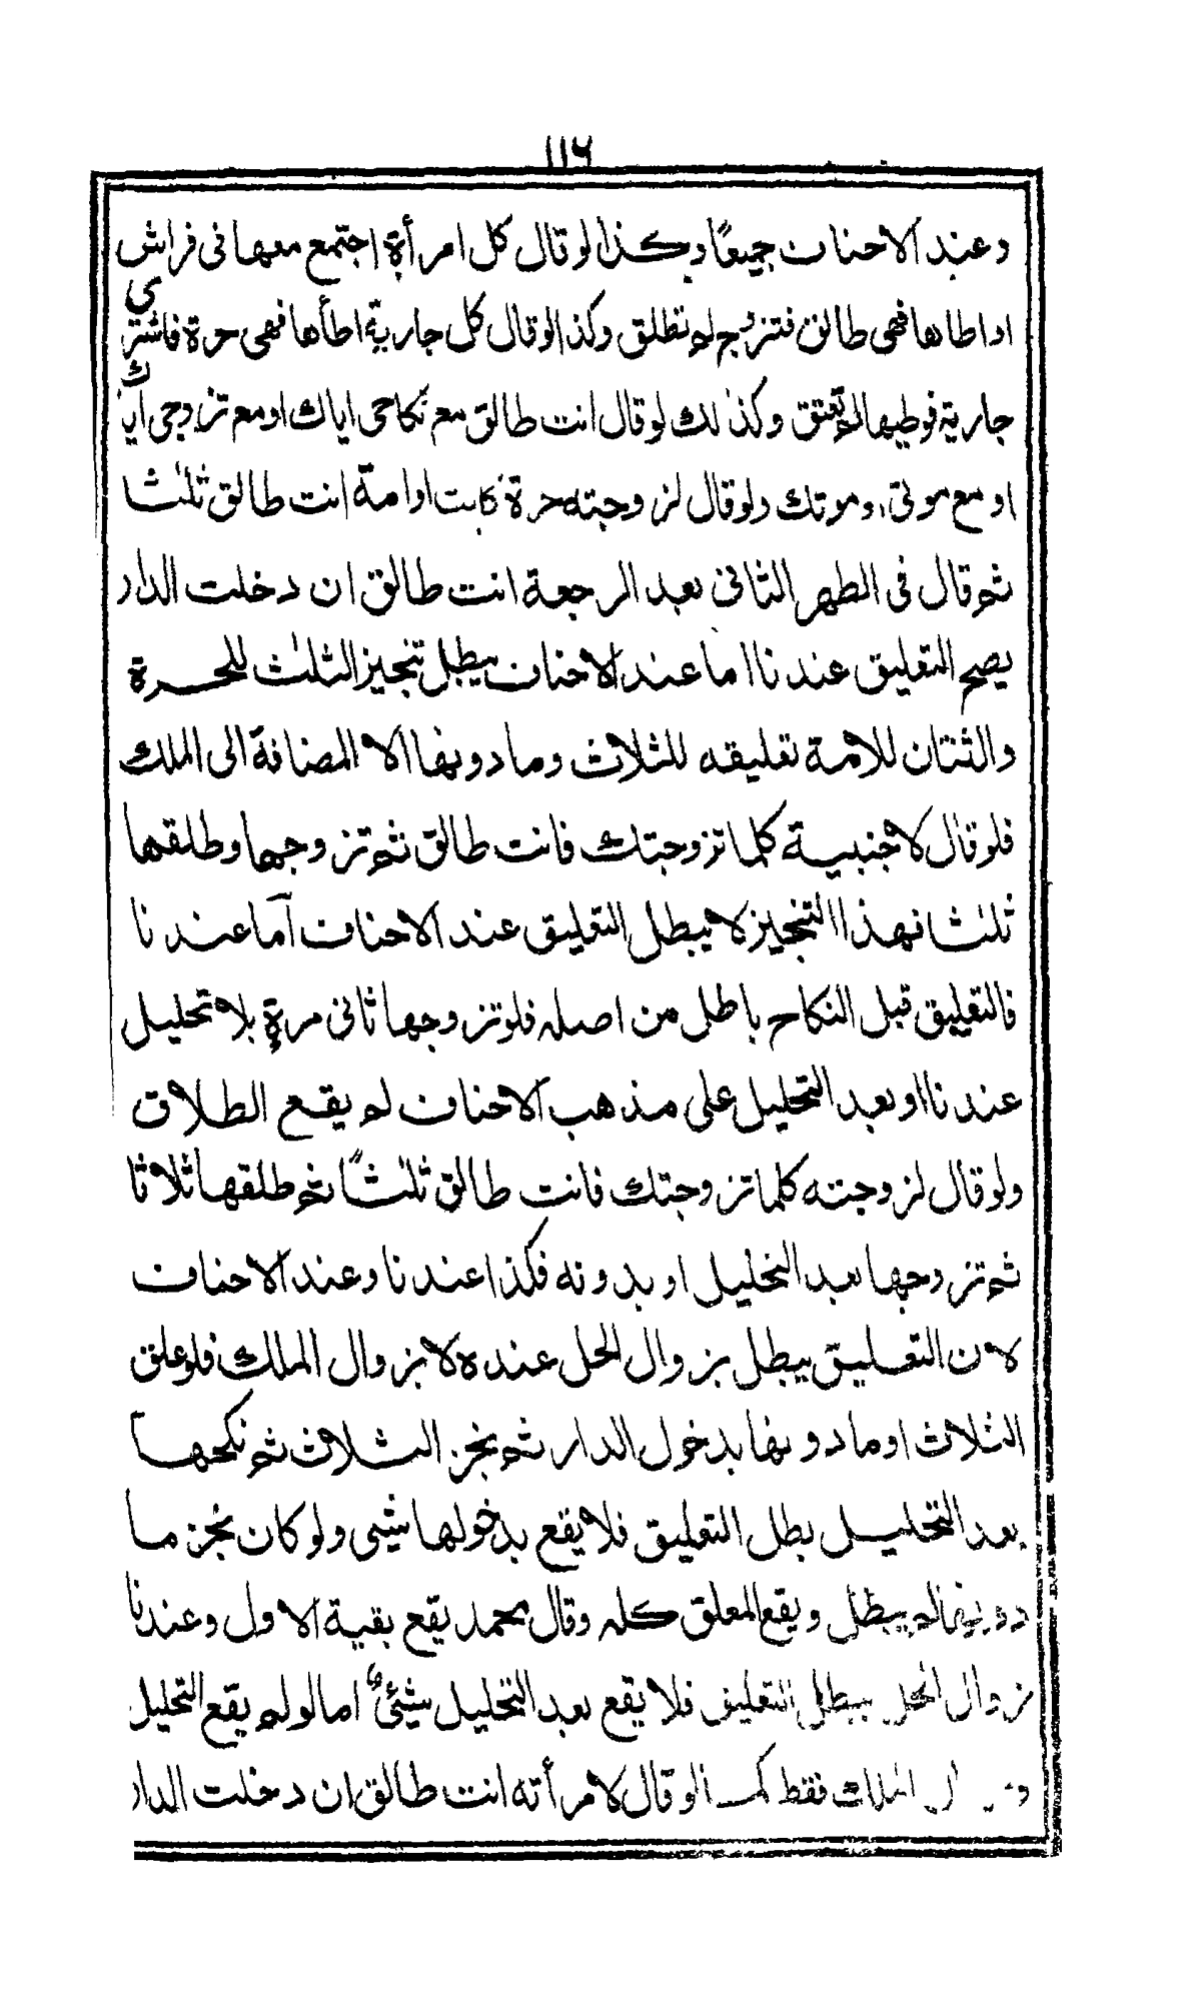 ١١٦
وعند الاحناف جميعًا وكذا لو قال كل امرأة اجتمع معها فى فراش
او اطاها فهى طالق فتزوج لم تطلق وكذا لو قال كل جارية اطأها فهى حرة فاشترى
جارية فوطيها لم تعتق وكذلك لو قال انت طالق مع نكاحى اياك او مع تزوجى اياك
او مع موتى وموتك ولو قال لزوجته حرة كانت او امة انت طالق ثلثا
ثم قال فى الطهر الثانى بعد الرجعة انت طالق ان دخلت الدار
يصح التعليق عندنا اما عند الاحناف يبطل تنجيز الثلث للحرة
والثنتان للامة تعليقه للثلاث وما دونها الا المضافة الى الملك
فلو قال لاجنبية كلما تزوجتك فانت طالق ثم تزوجها وطلقها
ثلثا فهذا التنجيز لا يبطل التعليق عند الاحناف آما عندنا
فالتعليق قبل النكاح باطل من اصله فلو تزوجها ثانى مرة بلا تحليل
عندنا او بعد التحليل على مذهب الاحناف لم يقع الطلاق
ولو قال لزوجته كلما تزوجتك فانت طالق ثلثاً ثم طلقها ثلاثا
ثم تزوجها بعد التحليل او بدونه فكذا عندنا وعند الاحناف
لان التعليق يبطل بزوال الحل عنده لا بزوال الملك فلو علق
الثلاث او ما دونها بدخول الدار ثم نجز الثلاث ثم نكحها
بعد التحليل بطل التعليق فلا يقع بدخولها شيى ولو كان نجز ما
دونها لم يبطل ويقع المعلق كله وقال محمد يقع بقية الاول وعندنا
زوال الحل يبطل التعليق فلا يقع بعد التحليل شيئى اما لو لم يقع التحليل
الملك فقط كما لو قال لامرأته انت طالق ان دخلت الدار